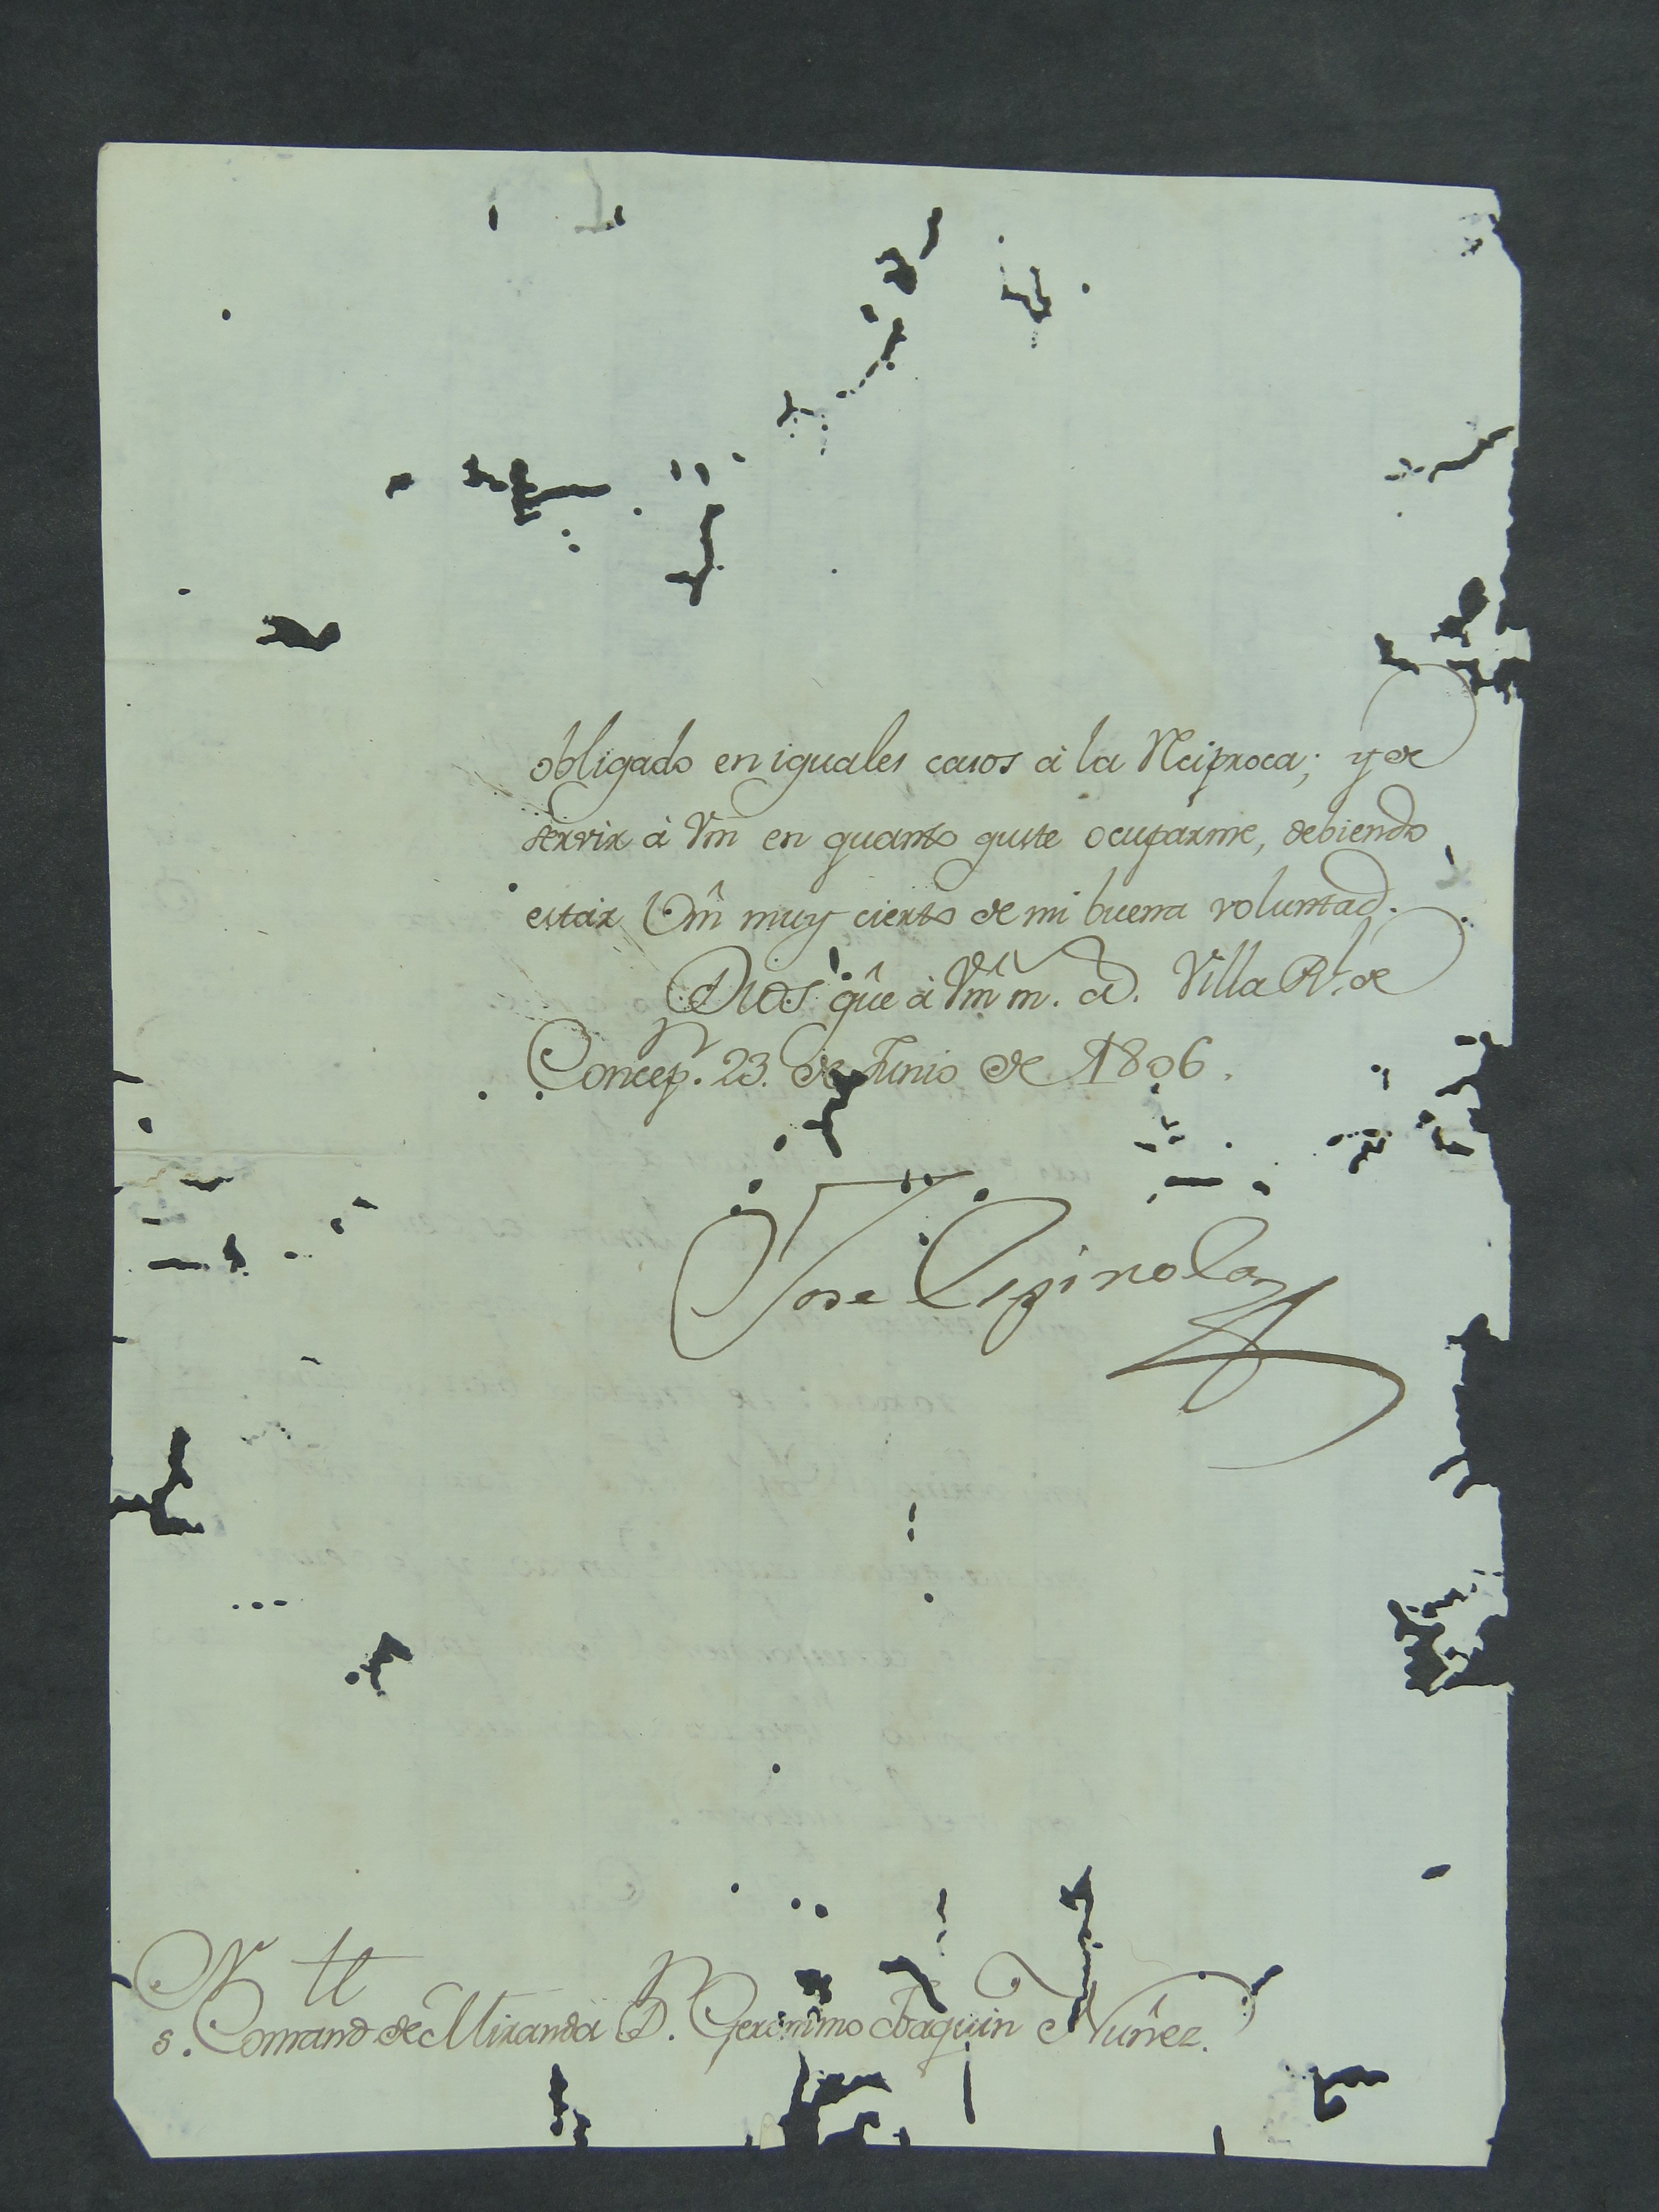 obligado en iguales casos à la Reciproca; y de
servir à Vm̂ en quanto guste ocuparme, debiendo
estar Vm̂ muy cierto de mi buena voluntad.
Dios gûe à Vm̂ m.ˢ a.ˢ Villa R.ˡ de
Concep.ⁿ 23. de Junio de 1806.
Jose Espinola
S.ʳ Comand.ᵗᵉ de Miranda D.ⁿ Geronimo Joaquin Nuñez.